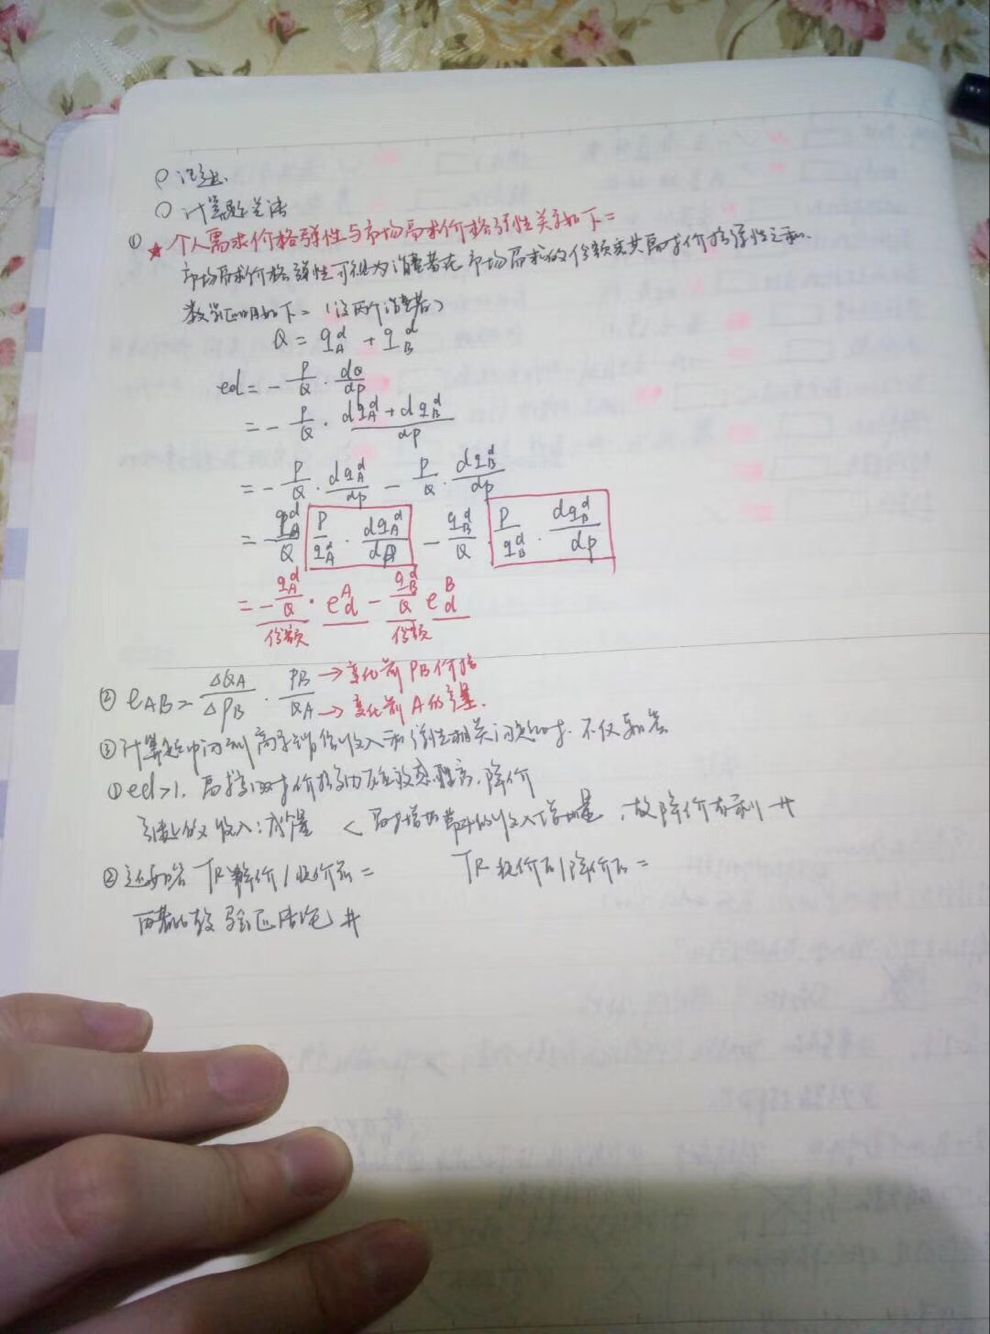 计算题总结
① ★个人需求价格弹性与市场需求价格弹性关系如下=
市场需求价格弹性可视为消费者在市场需求的份额乘其需求价格弹性之和.
数学证明如下=(设两个消费者)
Q = q_A^d + q_B^d
ed = - P/Q · dQ/dp
= - P/Q · (dq_A^d + dq_B^d)/dp
= - P/Q · dq_A^d/dp - P/Q · dq_B^d/dp
= - q_A^d/Q P/q_A^d · dq_A^d/dp - q_B^d/Q · P/q_B^d · dq_B^d/dp
= - q_A^d/Q · e_d^A - q_B^d/Q e_d^B
份额 份额
② e_AB = ΔQA/ΔPB · PB/QA →变化前PB价格
→变化前A的
③计算题中问到 收入和弹性相关问题时.不仅要答
①ed>1. 需求 价格 . 降价
收入 < 需求增加带来的收入增加量,故降价有利 #
②还要答 TR = TR =
两者比较 验证结论 #